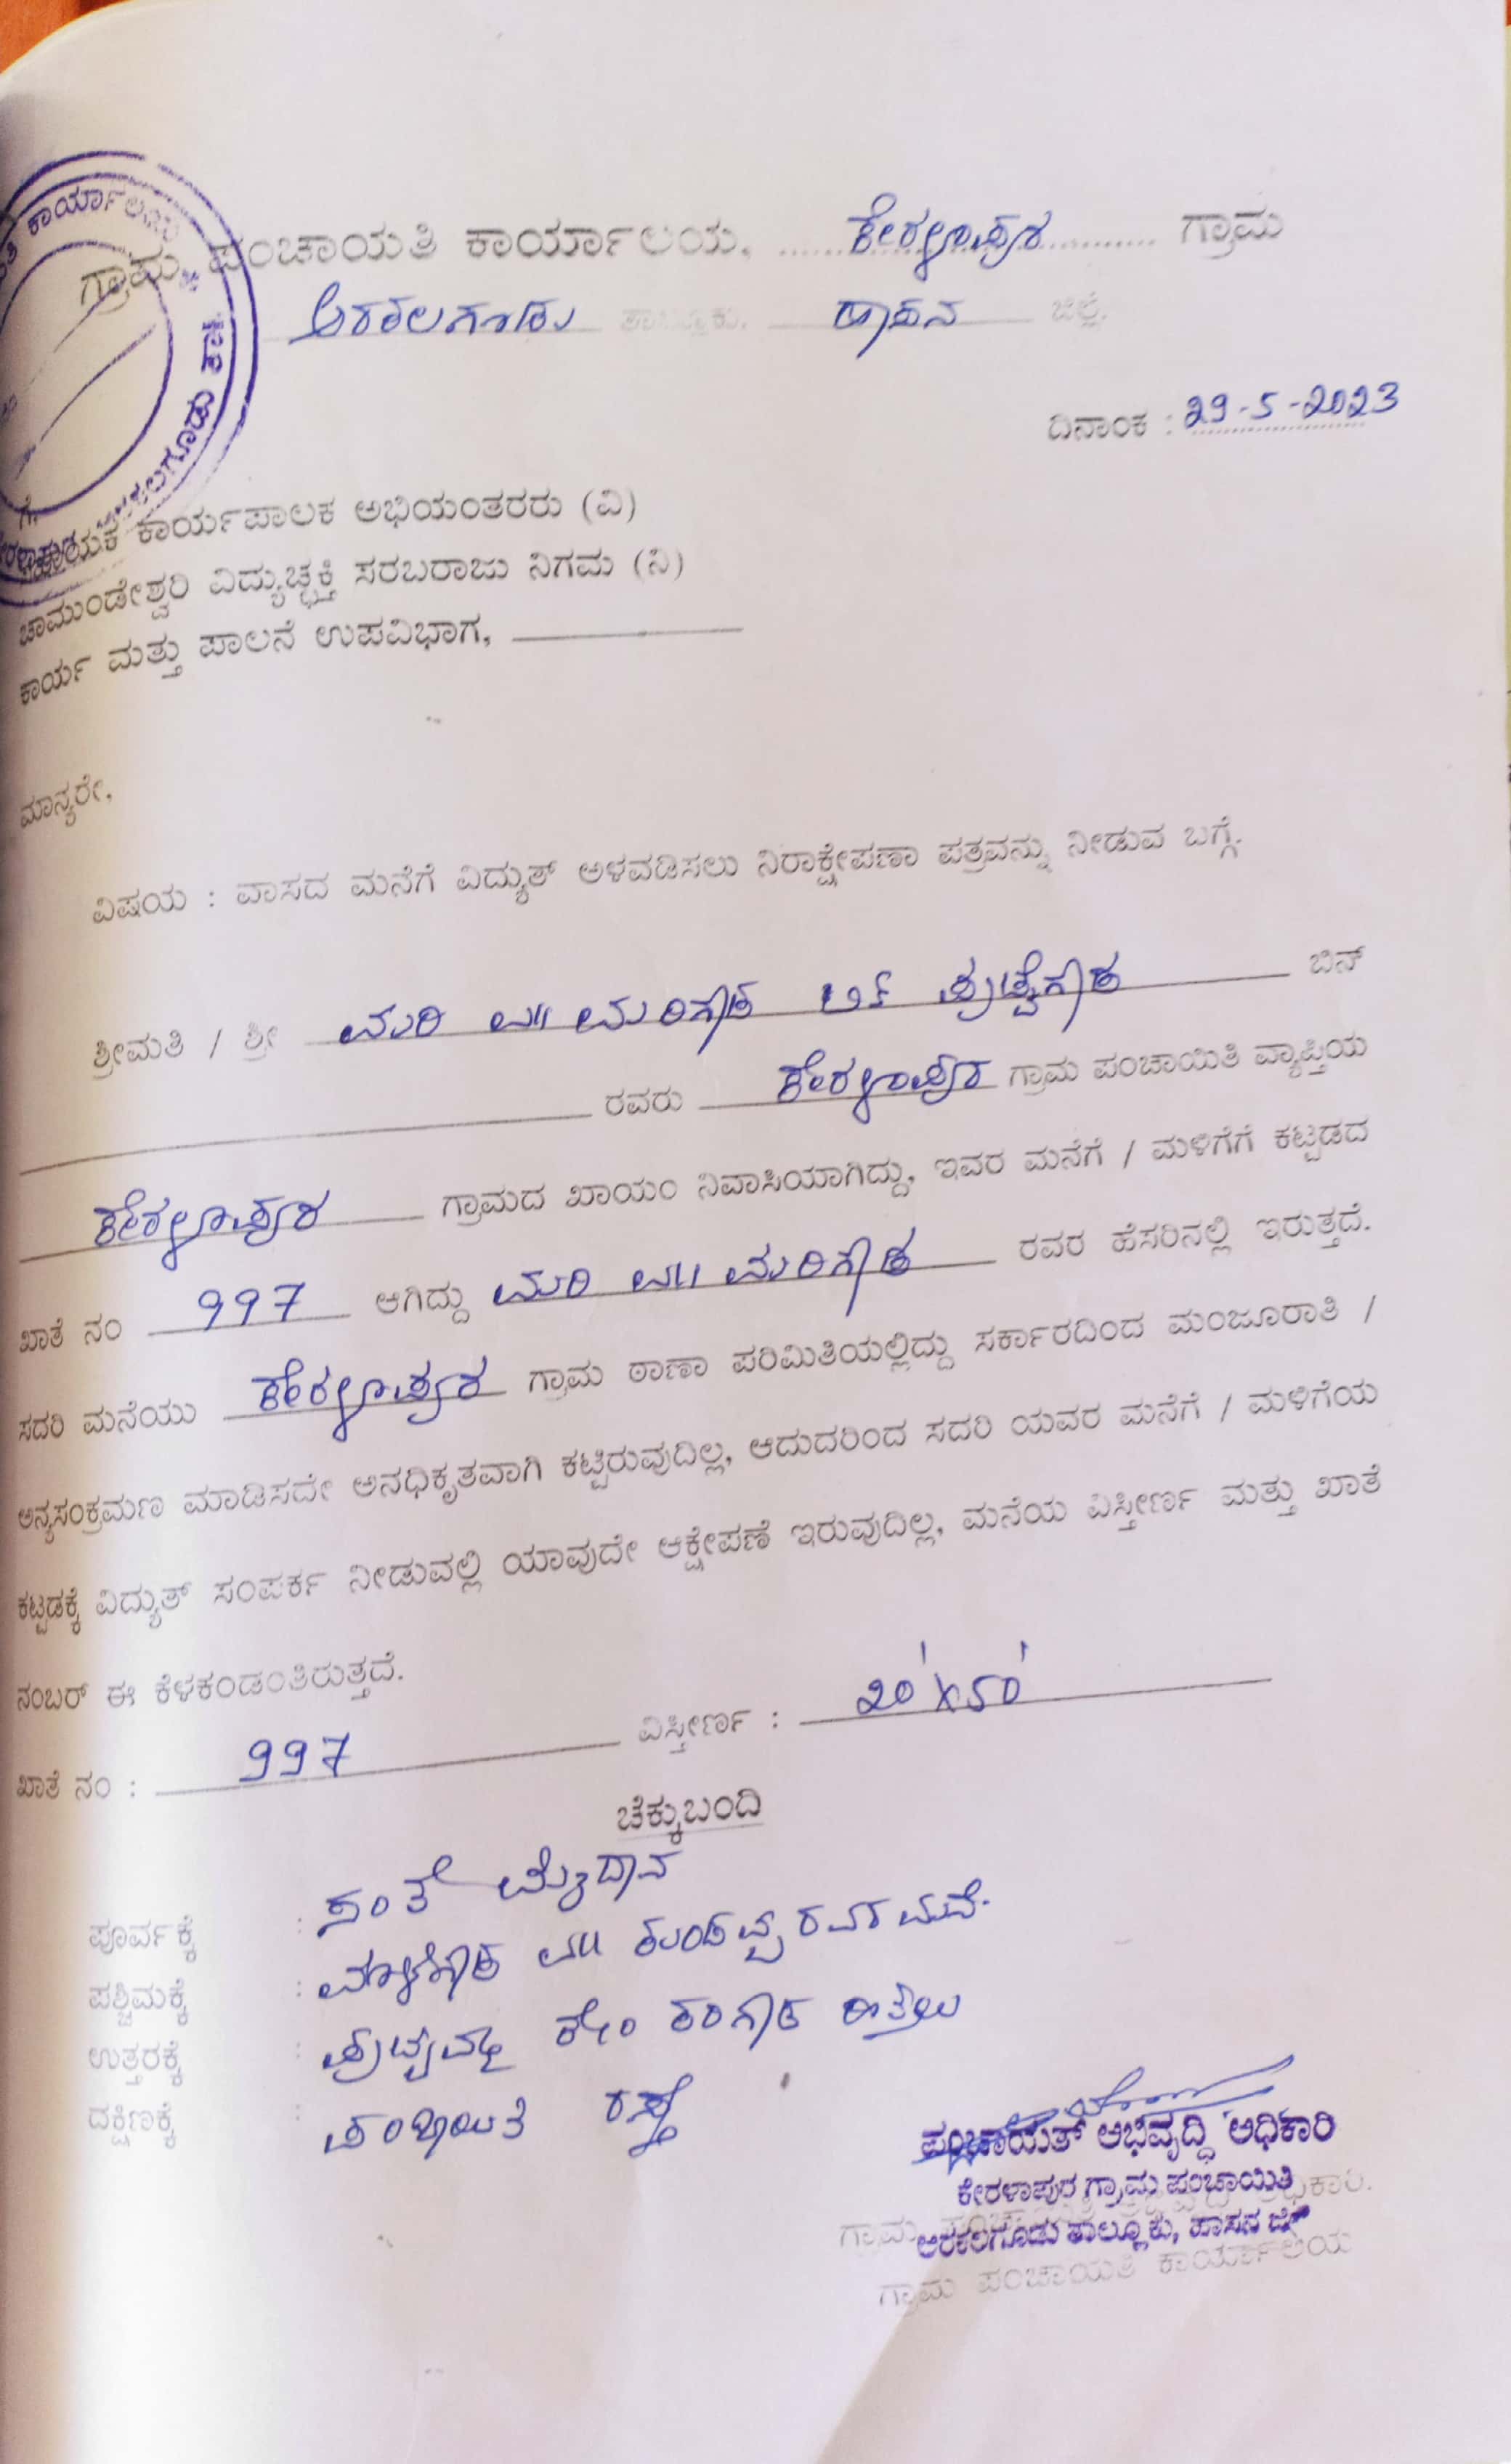 ಗ್ರಾಮ ಪಂಚಾಯತಿ ಕಾರ್ಯಾಲಯ, ಕೇರಳಾಪುರ ಗ್ರಾಮ
ಅರಕಲಗೂಡು ತಾಲ್ಲೂಕು. ಹಾಸನ ಜಿಲ್ಲೆ.
ದಿನಾಂಕ : 29-5-2023
ಗೆ,
ಸಹಾಯಕ ಕಾರ್ಯಪಾಲಕ ಅಭಿಯಂತರರು (ವಿ)
ಚಾಮುಂಡೇಶ್ವರಿ ವಿದ್ಯುಚ್ಛಕ್ತಿ ಸರಬರಾಜು ನಿಗಮ (ನಿ)
ಕಾರ್ಯ ಮತ್ತು ಪಾಲನೆ ಉಪವಿಭಾಗ,
ಮಾನ್ಯರೇ,
ವಿಷಯ : ವಾಸದ ಮನೆಗೆ ವಿದ್ಯುತ್ ಅಳವಡಿಸಲು ನಿರಾಕ್ಷೇಪಣಾ ಪತ್ರವನ್ನು ನೀಡುವ ಬಗ್ಗೆ.
ಶ್ರೀಮತಿ / ಶ್ರೀ ಮರಿ ಮರಿಗೌಡ ಪುಟ್ಟೇಗೌಡ ಬಿನ್
ರವರು ಕೇರಳಾಪುರ ಗ್ರಾಮ ಪಂಚಾಯಿತಿ ವ್ಯಾಪ್ತಿಯ
ಕೇರಳಾಪುರ ಗ್ರಾಮದ ಖಾಯಂ ನಿವಾಸಿಯಾಗಿದ್ದು, ಇವರ ಮನೆಗೆ / ಮಳಿಗೆಗೆ ಕಟ್ಟಡದ
ಖಾತೆ ನಂ 997 ಆಗಿದ್ದು ಮರಿ ಮರಿಗೌಡ ರವರ ಹೆಸರಿನಲ್ಲಿ ಇರುತ್ತದೆ.
ಸದರಿ ಮನೆಯು ಕೇರಳಾಪುರ ಗ್ರಾಮ ಠಾಣಾ ಪರಿಮಿತಿಯಲ್ಲಿದ್ದು ಸರ್ಕಾರದಿಂದ ಮಂಜೂರಾತಿ /
ಅನ್ಯಸಂಕ್ರಮಣ ಮಾಡಿಸದೇ ಅನಧಿಕೃತವಾಗಿ ಕಟ್ಟಿರುವುದಿಲ್ಲ, ಆದುದರಿಂದ ಸದರಿ ಯವರ ಮನೆಗೆ / ಮಳಿಗೆಯ
ಕಟ್ಟಡಕ್ಕೆ ವಿದ್ಯುತ್ ಸಂಪರ್ಕ ನೀಡುವಲ್ಲಿ ಯಾವುದೇ ಆಕ್ಷೇಪಣೆ ಇರುವುದಿಲ್ಲ, ಮನೆಯ ವಿಸ್ತೀರ್ಣ ಮತ್ತು ಖಾತೆ
ನಂಬರ್ ಈ ಕೆಳಕಂಡಂತಿರುತ್ತದೆ.
ಖಾತೆ ನಂ : 997 ವಿಸ್ತೀರ್ಣ : 20'X50'
ಚೆಕ್ಕುಬಂದಿ
ಪೂರ್ವಕ್ಕೆ : ಸಂತೆ ಮೈದಾನ
ಪಶ್ಚಿಮಕ್ಕೆ : ರವರ ಮನೆ.
ಉತ್ತರಕ್ಕೆ : ಹಿತ್ತಲು
ದಕ್ಷಿಣಕ್ಕೆ : ಪಂಚಾಯಿತಿ ರಸ್ತೆ
ಪಂಚಾಯತ್ ಅಭಿವೃದ್ಧಿ ಅಧಿಕಾರಿ
ಕೇರಳಾಪುರ ಗ್ರಾಮ ಪಂಚಾಯಿತಿ
ಅರಕಲಗೂಡು ತಾಲ್ಲೂಕು, ಹಾಸನ ಜಿಲ್ಲೆ
ಗ್ರಾಮ ಪಂಚಾಯತಿ ಕಾರ್ಯಾಲಯ